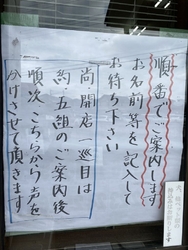 順番でご案内します
お名前等を記入して
お待ち下さい
尚・開店一巡目は
約・五組のご案内後
順次こちらから声を
かけさせて頂きます